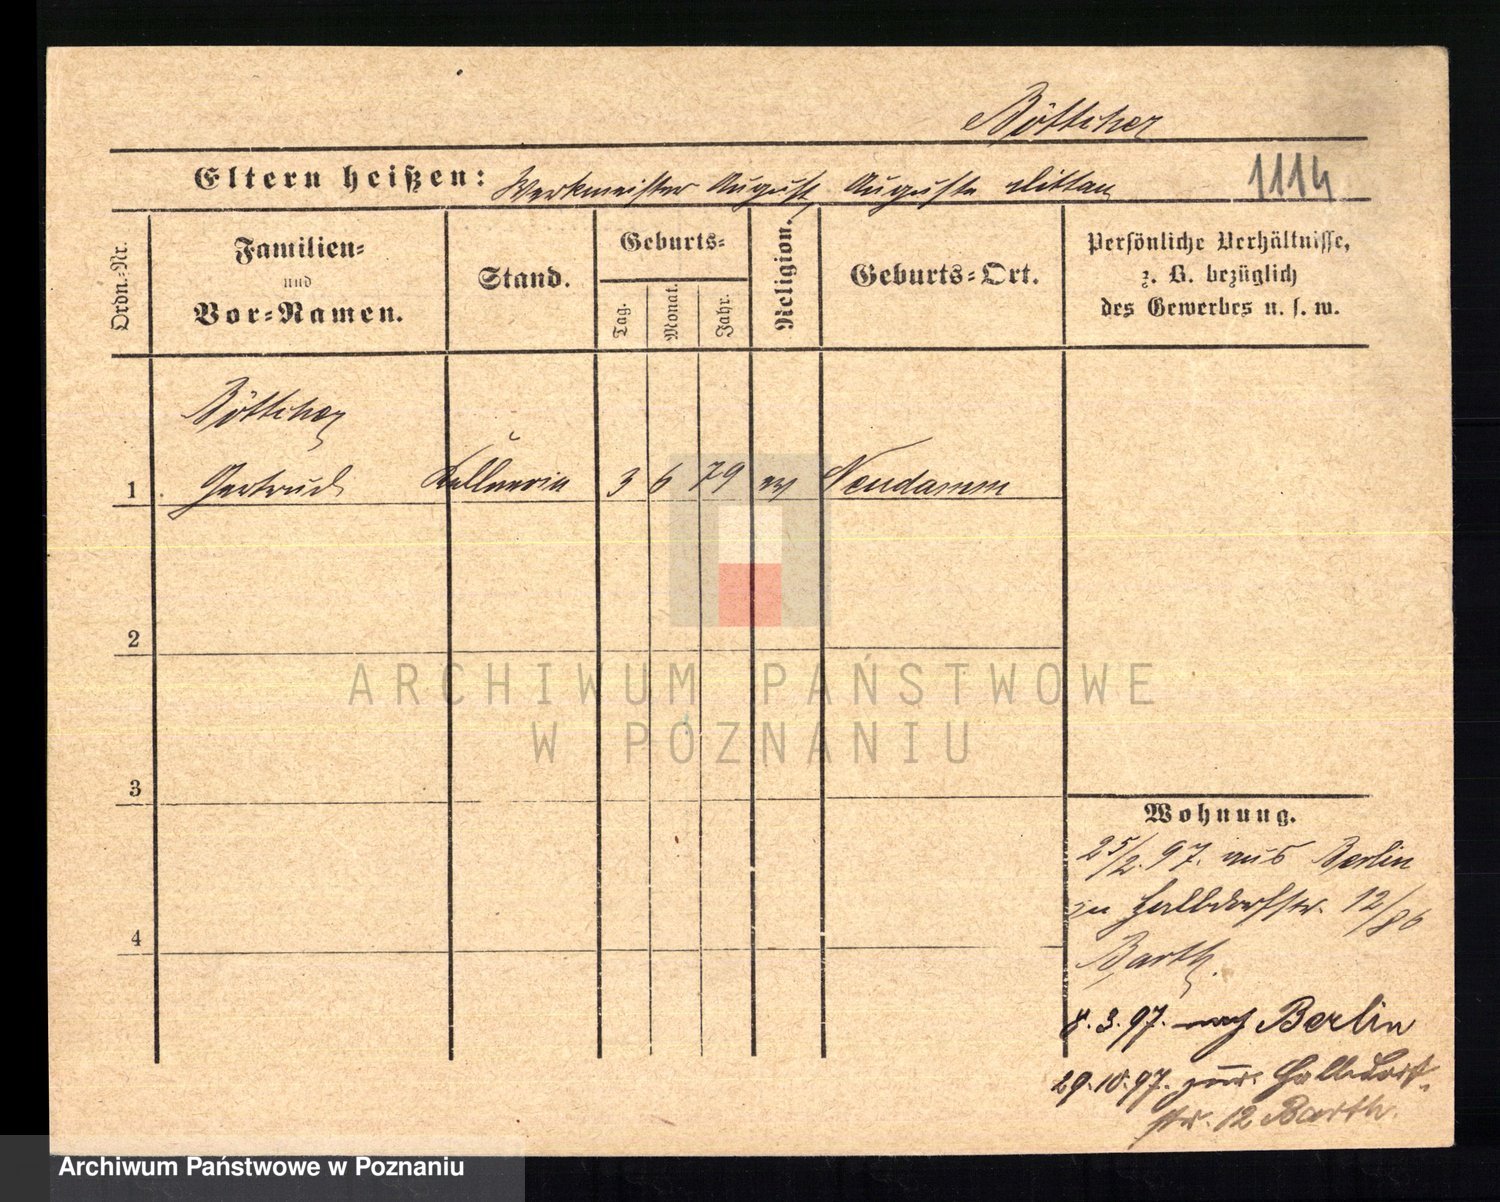 Böttcher
Eltern heißen: Werkmeister August, Auguste Dittau
1114
Ordn.-Nr.
Familien-
und
Vor-Namen.
Stand.
Geburts-
Tag.
Monat.
Jahr.
Religion.
Geburts-Ort.
Persönliche Verhältnisse,
z. B. bezüglich
des Gewerbes u. s. w.
Böttcher
1 Gertrud Kellnerin 3 6 79 ev Neudamm
2
3
4
ARCHIWUM PAŃSTWOWE
W POZNANIU
Wohnung.
25/2. 97. aus Berlin
zu Halbdorfstr. 12/
Barth.
8. 3. 97. nach Berlin
29. 10. 97. zur. Halbdorf-
str. 12 Barth.
Archiwum Państwowe w Poznaniu